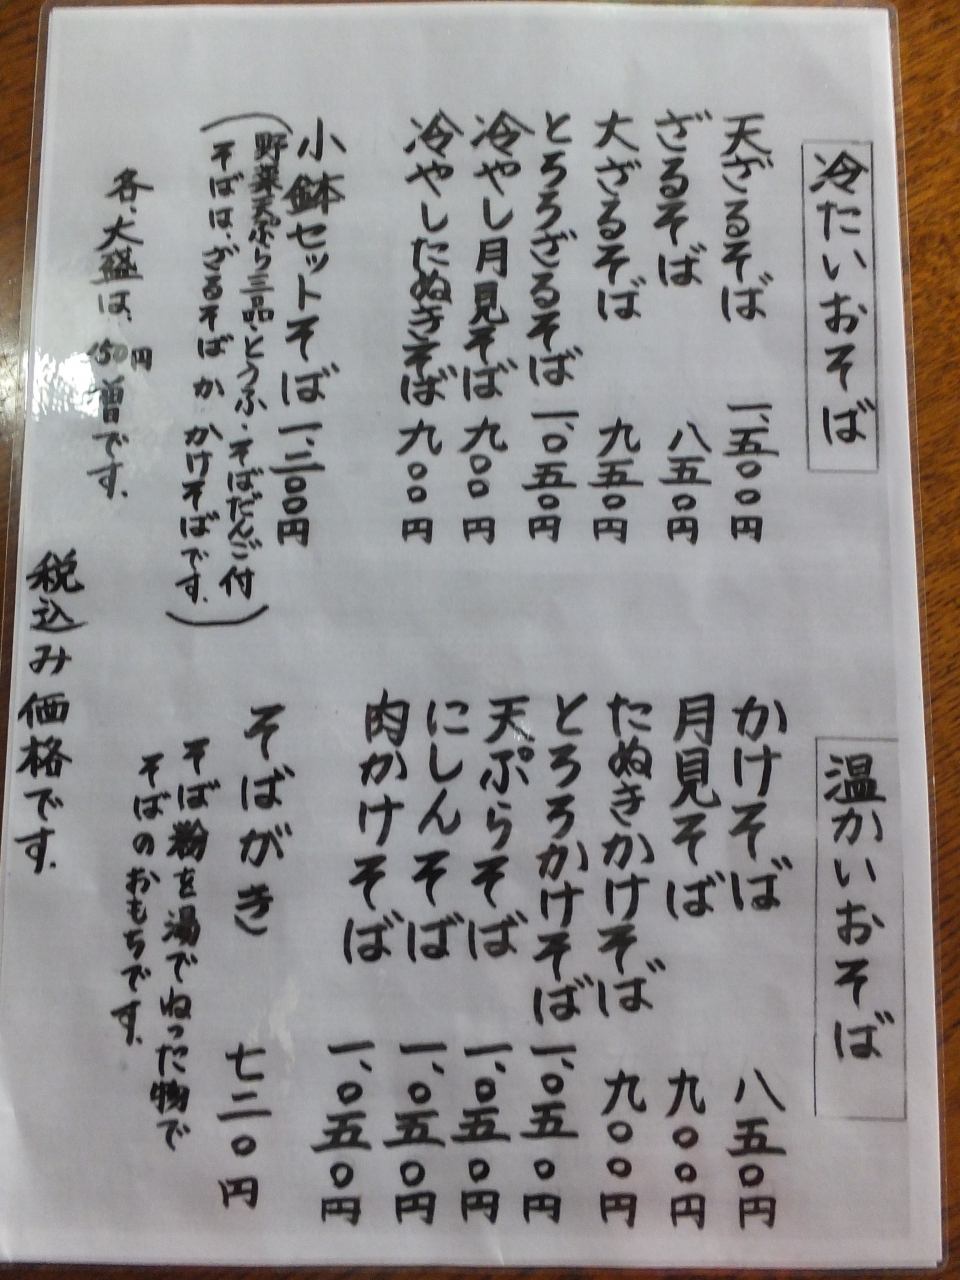 冷たいおそば
天ざるそば 一、五〇〇円
ざるそば 八五〇円
大ざるそば 九五〇円
とろろざるそば 一、〇五〇円
冷やし月見そば 九〇〇円
冷やしたぬきそば 九〇〇円
小鉢セットそば 一、二〇〇円
(野菜天ぷら三品・とうふ・そばだんご付
そばは、ざるそばか かけそばです。)
各、大盛は、150円増です。
温かいおそば
かけそば 八五〇円
月見そば 九〇〇円
たぬきかけそば 九〇〇円
とろろかけそば 一、〇五〇円
天ぷらそば 一、〇五〇円
にしんそば 一、〇五〇円
肉かけそば 一、〇五〇円
そばがき 七二〇円
そば粉を湯でねった物で
そばのおもちです。
税込み価格です。